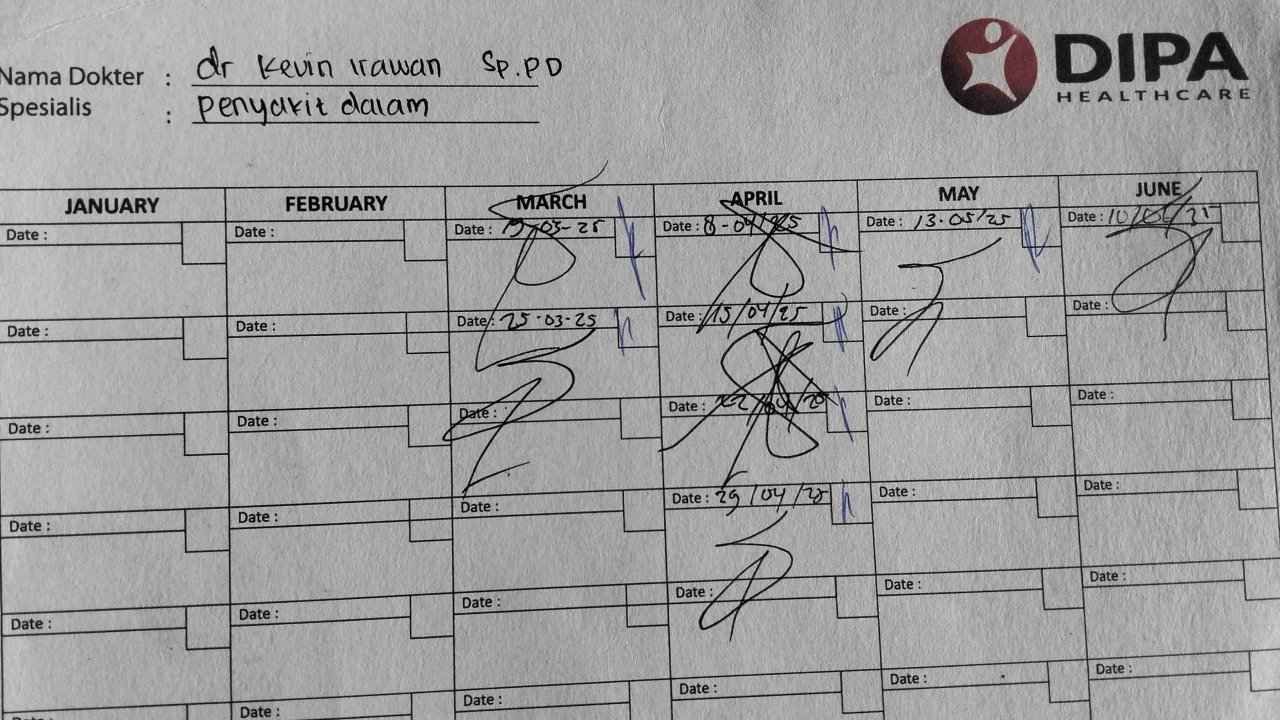 Nama Dokter : dr Kevin Irawan Sp.PD
Spesialis : Penyakit dalam
DIPA
HEALTHCARE
JANUARY FEBRUARY MARCH APRIL MAY JUNE
Date : Date : Date : 19-03-25 Date : 8-04/25 Date : 13.05/25 Date : 10/06/25
Date : Date : Date : 25-03-25 Date : 15/04/25 Date : Date :
Date : Date : Date : Date : 22/04/25 Date : Date :
Date : Date : Date : Date : 29/04/25 Date : Date :
Date : Date : Date : Date : Date : Date :
Date : Date : Date : Date : Date : Date :